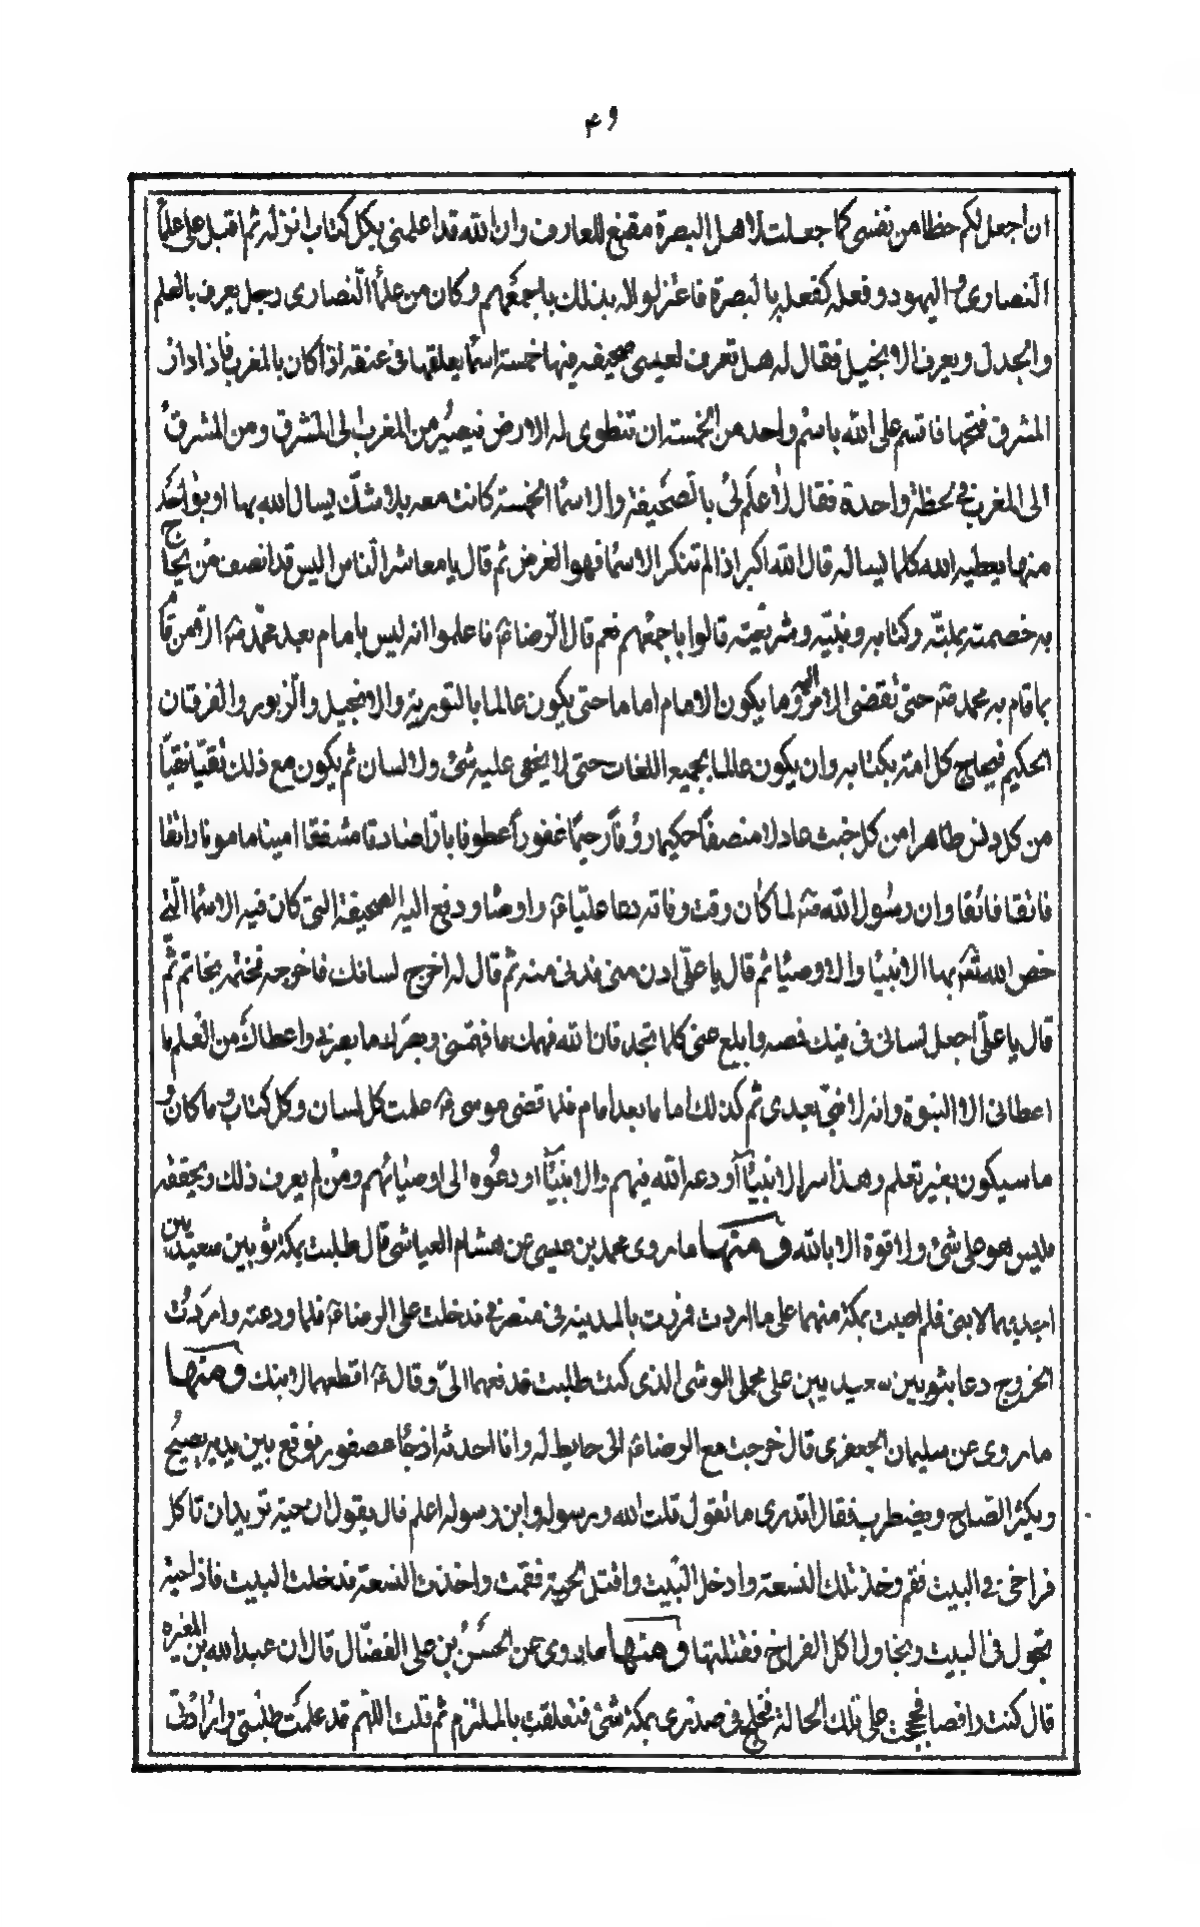 ان اجعل لكم حظا من نفسى كما جعلت لاهل البصرة مقنع للمعارف وان الله قد اعلمنى بكل كتاب انزله ثم اقبل على علماء
النصارى و اليهود وفعله كفعله بالبصرة فاعتزلوا له بذلك باجمعهم وكان من علماء النصارى رجل يعرف بالعلم
والجدل ويعرف الانجيل فقال له هل تعرف لعيسى صحيفه فيها خمسة اسماء يعلقها فى عنقه اذا كان بالمغرب فاذا اراد
المشرق فتحها فاقسم على الله باسم واحد من الخمسة ان تنطوى له الارض فيصير من المغرب الى المشرق ومن المشرق
الى المغرب فى لحظة واحدة فقال لا اعلم لى بالصحيفة والاسماء الخمسة كانت معه بلا شك ليسال الله بها او بواحد
منها يعطيه الله كلما يساله قال الله اكبر اذا لم تنكر الاسماء فهو الغرض ثم قال يا معاشر الناس اليس قد انصف من يحاج
به خصمته بملته وكتابه ونبيه وشريعته قالوا باجمعهم نعم قال الرضا ع فاعلموا انه ليس بامام بعد محمد ص الا من قام
بما قام به محمد ص حتى تقضى الامر اليه وما يكون الامام اماما حتى يكون عالما بالتورية والانجيل والزبور والفرقان
الحكيم فيحاج كل امة بكتابه وان يكون عالما بجميع اللغات حتى لا يخفى عليه شئ ولا لسان ثم يكون مع ذلك تقيا نقيا
من كل دنس طاهرا من كل خبث عادلا منصفا حكيما رؤفا رحيما غفورا عطوفا بارا صادقا مشفقا امينا مامونا راتقا
فاتقا فاتقا وان رسول الله ص لما كان وقت وفاته دعا عليا ع واوصاه ودفع اليه الصحيفة التى كان فيه الاسماء التى
خص الله تع بها الانبياء والاوصياء ثم قال يا على ادن منى فدنى منه ثم قال له اخرج لسانك فاخرجه فختمه بخاتم ثم
قال يا على اجعل لسانى فى فيك فصه وابلع عنى كلما تجد فان الله فهمك ما فهمنى وبصرك ما بصرنى واعطاك من العلم ما
اعطانى الا النبوة وانه لا نبى بعدى ثم كذلك اماما بعد امام فلما قضى موسى ع علمت كل لسان وكل كتاب و ما كان و
ما سيكون بغير تعلم وهذا سر الانبياء اودعه الله فيهم والانبياء اودعوه الى اوصيائهم ومن لم يعرف ذلك ويحققه
فليس هو على شئ ولا قوة الا بالله ومنها ما روى محمد بن عيسى عن هشام العباسى قال طلبت بمكة ثوبين سعيديين
اهديهما لابنى فلم اصب بمكة منهما على ما اردت فمررت بالمدينه فى منصرفى فدخلت على الرضا ع فلما ودعته واردت
الخروج دعا بثوبين سعيديين على عمل الوشى الذى كنت طلبت فدفعهما الى وقال ع اقطعهما لابنك ومنها
ما روى عن سليمان الجعفرى قال خرجت مع الرضا ع الى حايط له وانا احدثه اذ جاء عصفور فوقع بين يديه يصيح
ويكثر الصياح ويضطرب فقال اتدرى ما تقول قلت الله ورسوله وابن رسوله اعلم قال يقول ان حية تريد ان تاكل
فراخى فى البيت فقم وخذ تلك النسعة وادخل البيت واقتل الحية فقمت واخذت النسعة فدخلت البيت فاذا حية
تجول فى البيت وتحاول اكل الفراخ فقتلتها ومنها ما روى عن الحسن بن على الفضال قال ان عبد الله بن المغيره
قال كنت رافضا فحججت على تلك الحالة فخلج فى صدرى بمكة شئ فتعلقت بالملتزم ثم قلت اللهم قد علمت طلبتى وارادتى